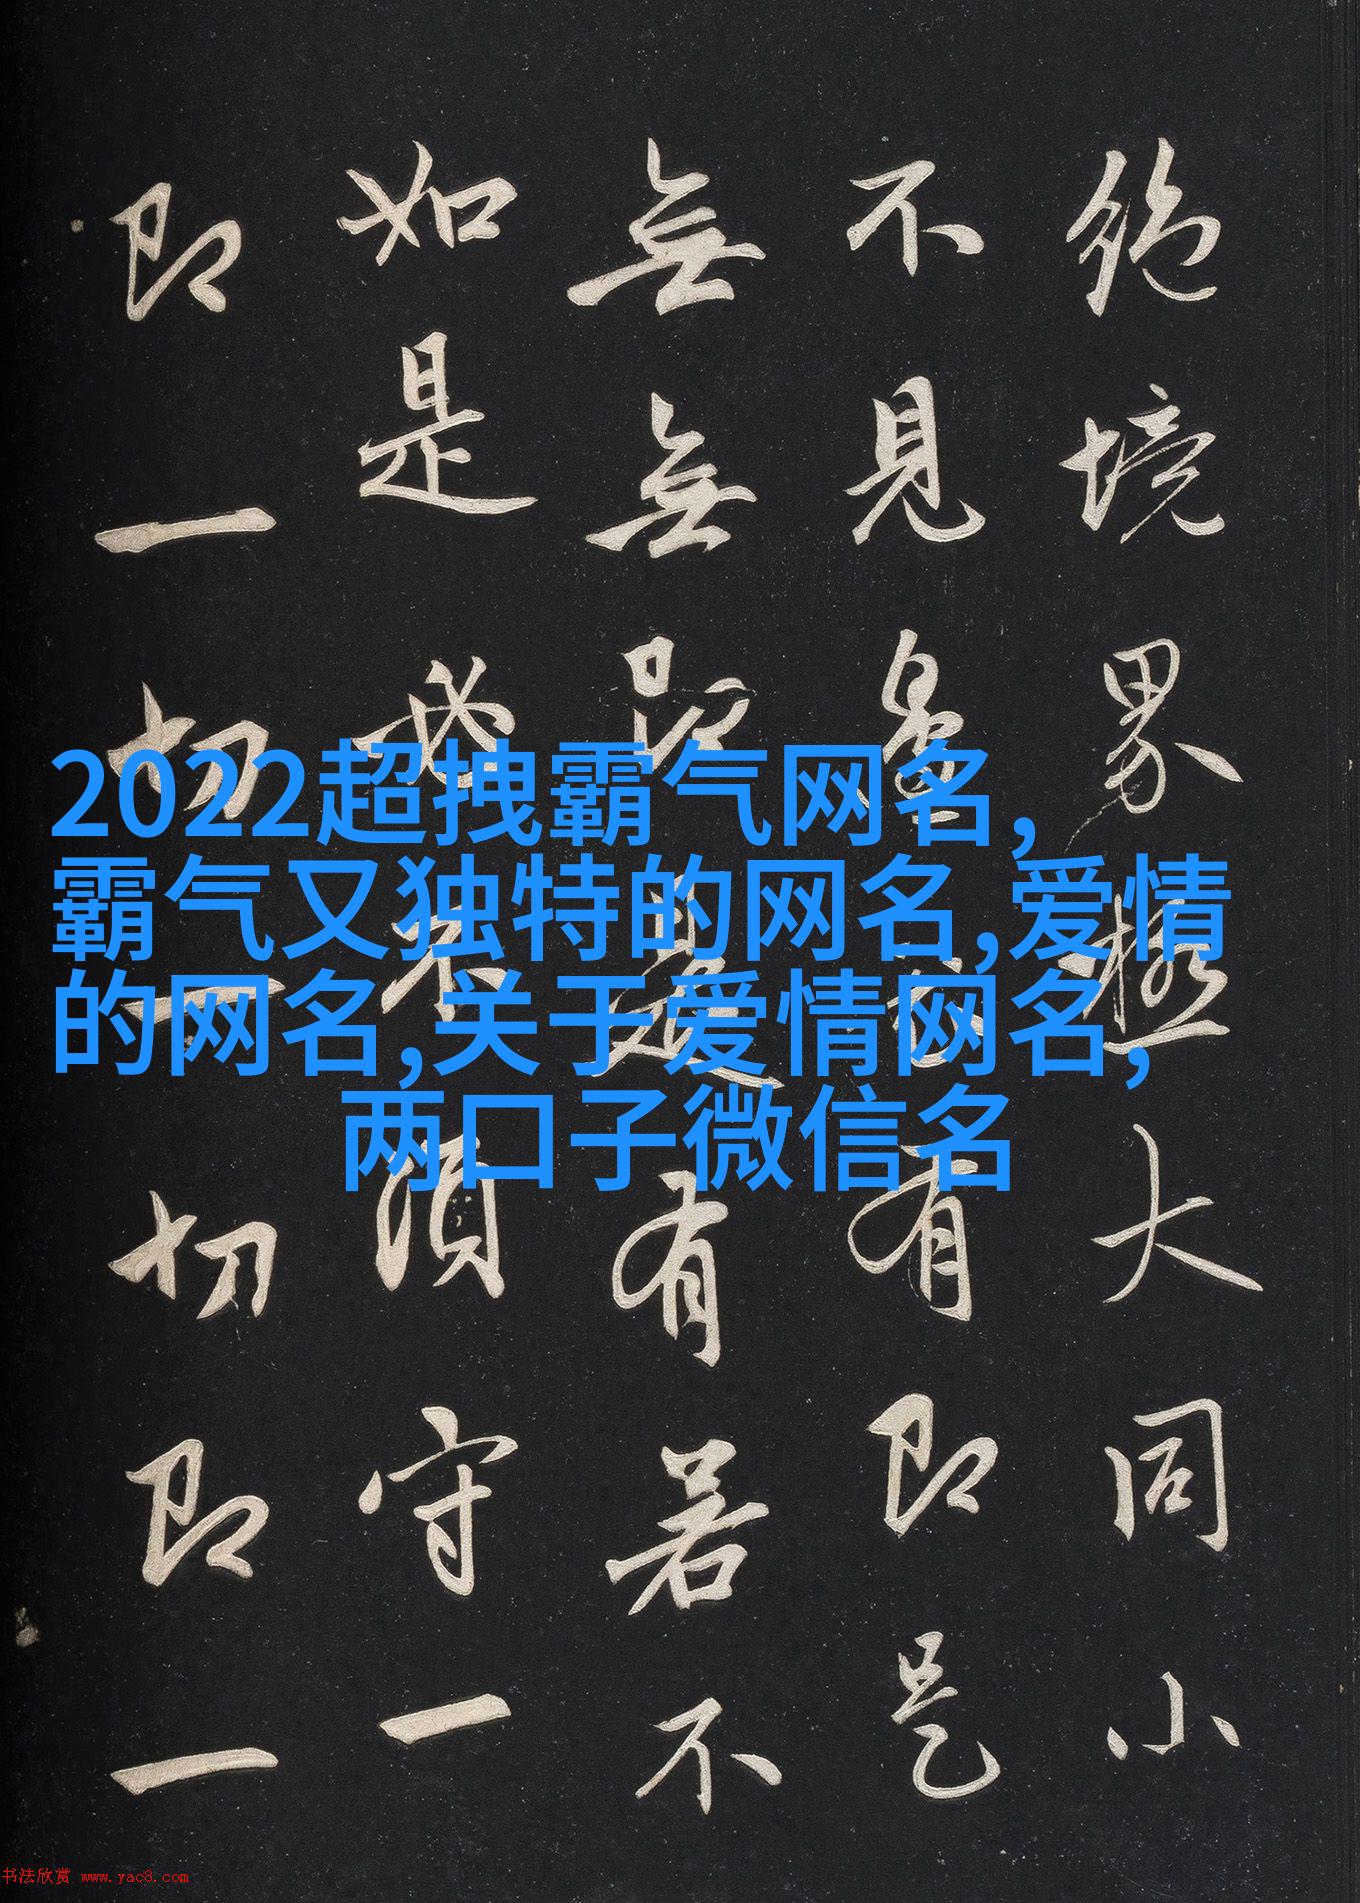 絶境界極大同小
不見邊表有即是
無無即是有若不
如是必不須守一
即一切一切即一
2022超拽霸气网名,
霸气又独特的网名,爱情
的网名,关于爱情网名,
两口子微信名
书法欣赏 www.yac8.com